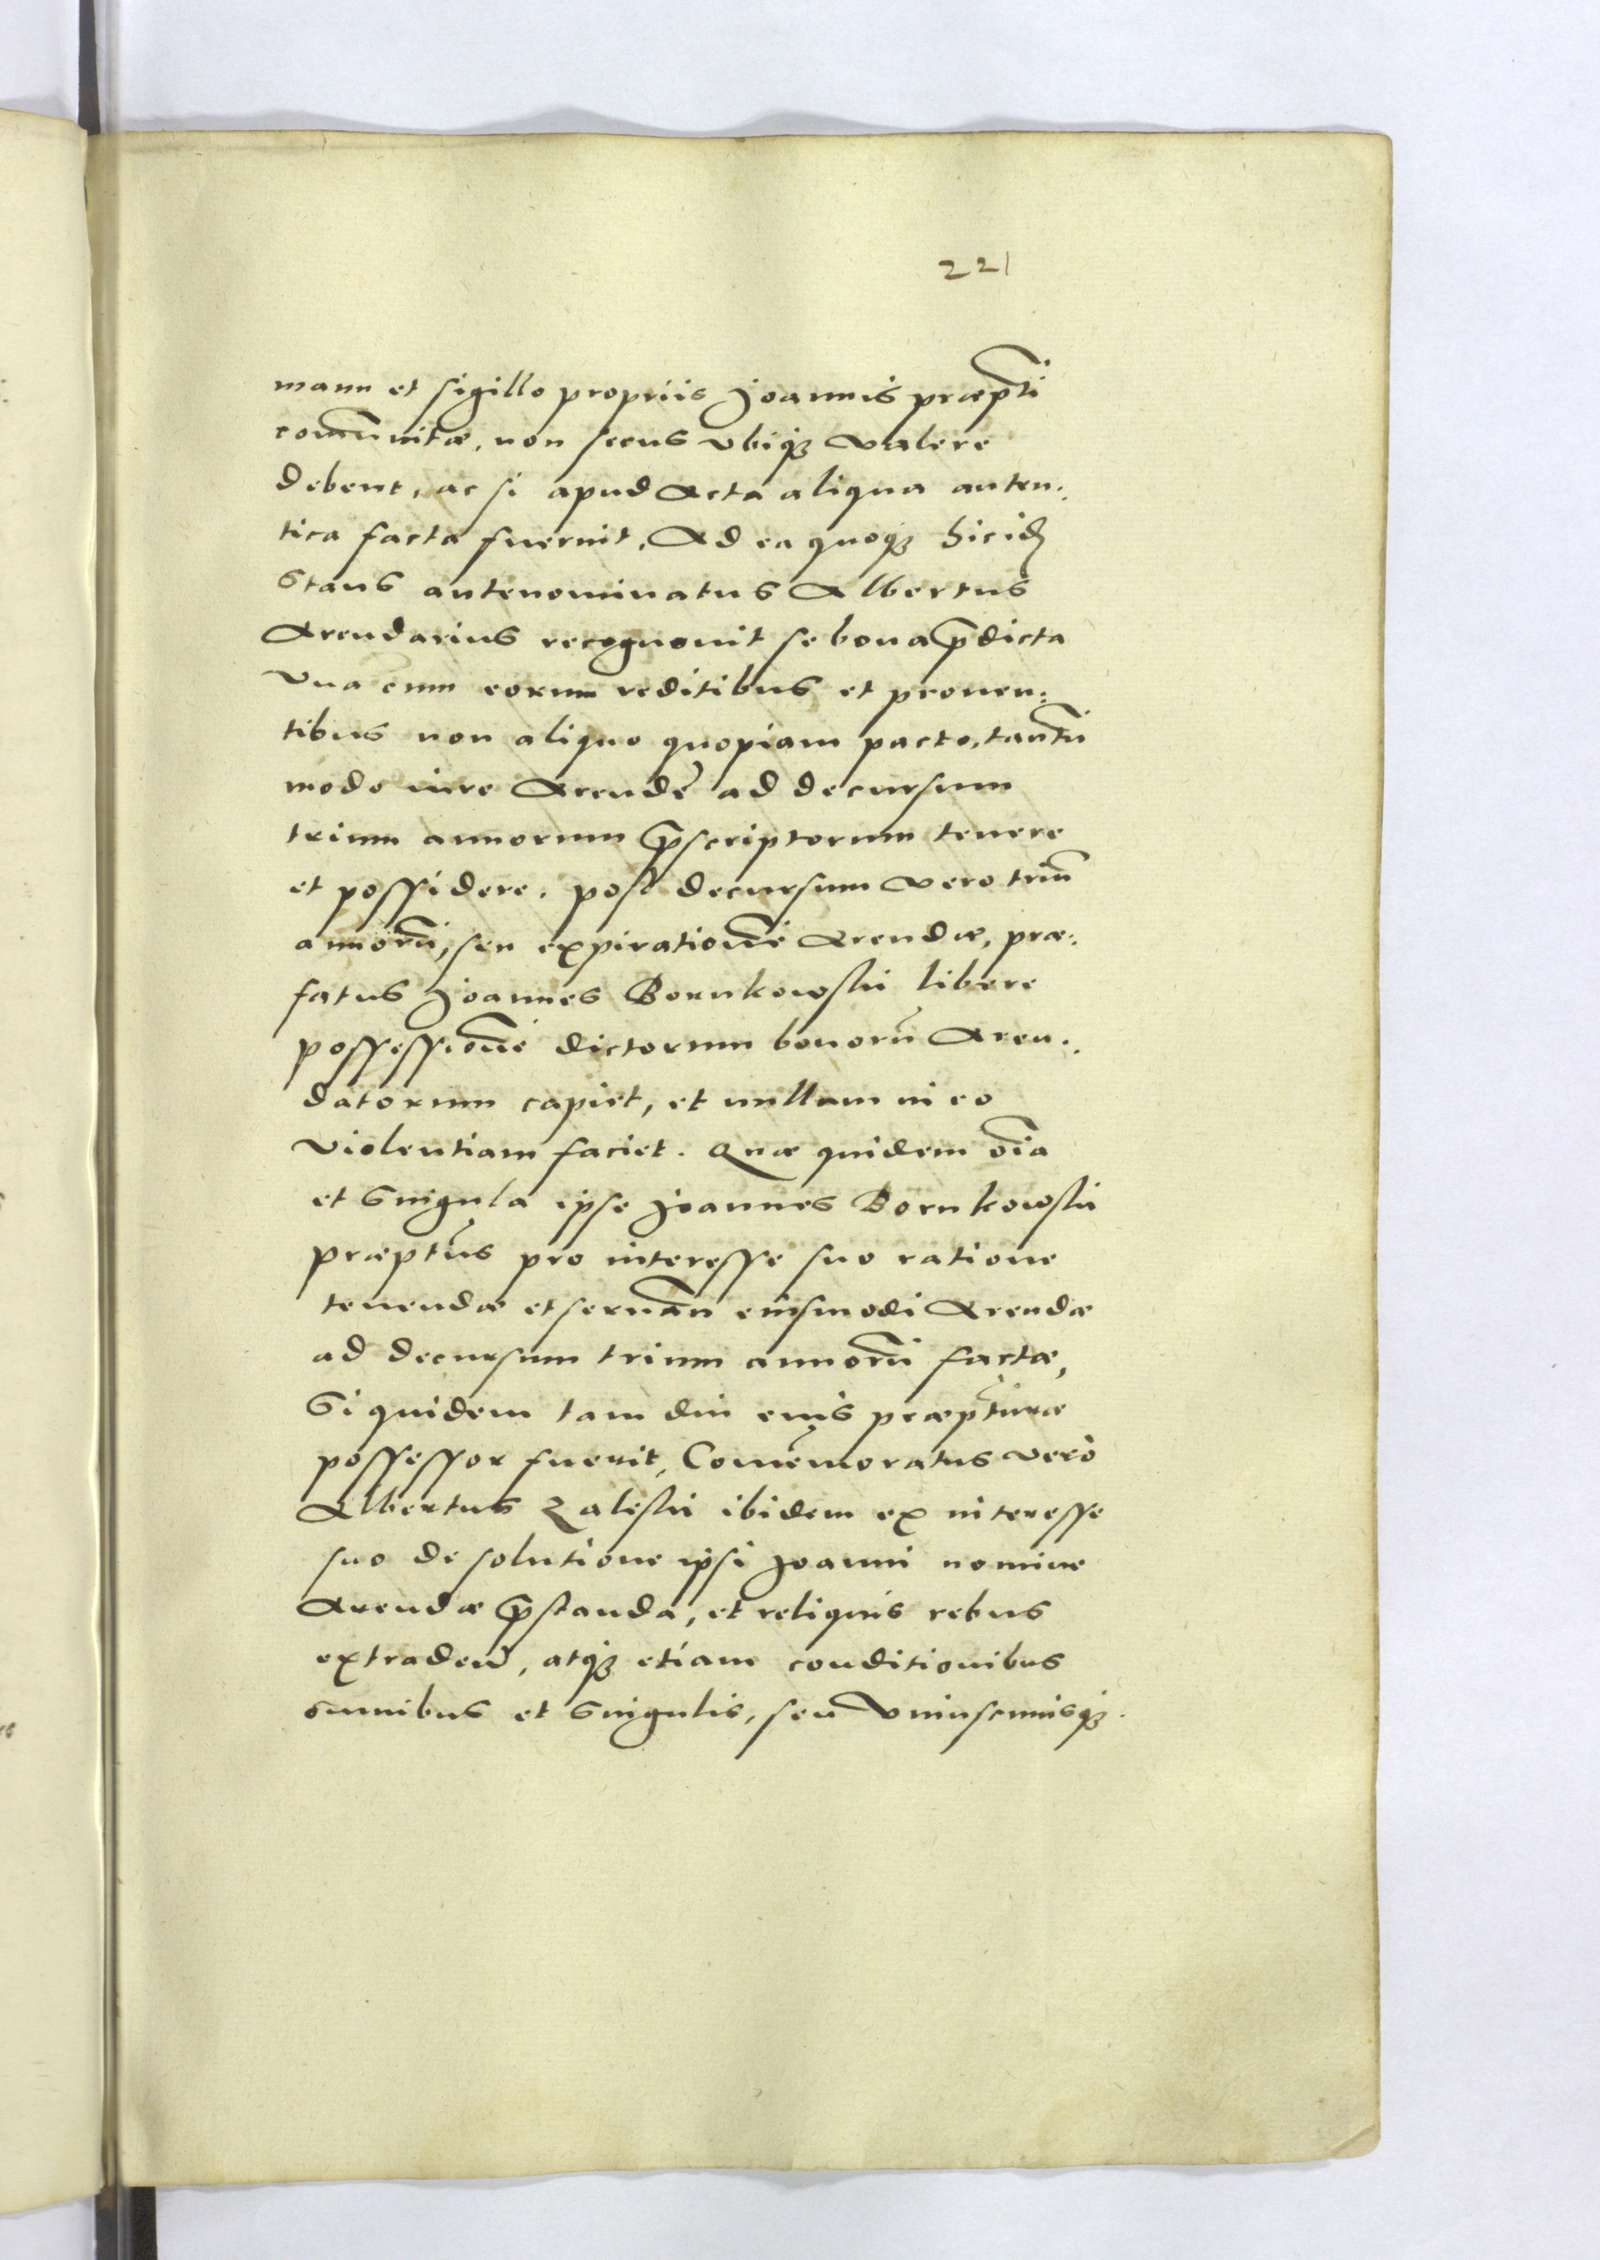 221
manu et sigillo propriis Joannis præp̄ti
com̄unitæ, non secus vbiq3 valere
debent, ac si apud Acta aliqua auten:
tica facta fuerint, Ad ea quoq3 hicid̄
stans antenominatus Albertus
Arendarius recognouit se bona p̄dicta
vna cum eorum reditibus et prouen:
tibus non aliquo quopiam pacto, tantū
modo iure Arendę ad decursum
trium annorum p̄scriptorum tenere
et possidere. post decursum vero triū
annorū, seu expirationē Arendæ, præ:
fatus Joannes Bornkowski libere
possessionē dictorum bonorū Aren:
datorum capiet, et nullam in eo
violentiam faciet. Quæ quidem oīa
et singula ipse Joannes Bornkowski
præptus pro interesse suo ratione
tenendæ et seruan̄ eiusmodi Arendæ
ad decursum trium annorū factæ,
Si quidem tam diu eius præp̄turæ
possessor fuerit, Com̄emoratus verò
Albertus Zaleski ibidem ex interesse
suo de solutione ipsi Joanni nomine
Arendæ p̄standa, et reliquis rebus
extraden̄, atq3 etiam conditionibus
omnibus et singulis, seu vniuscuiusq3